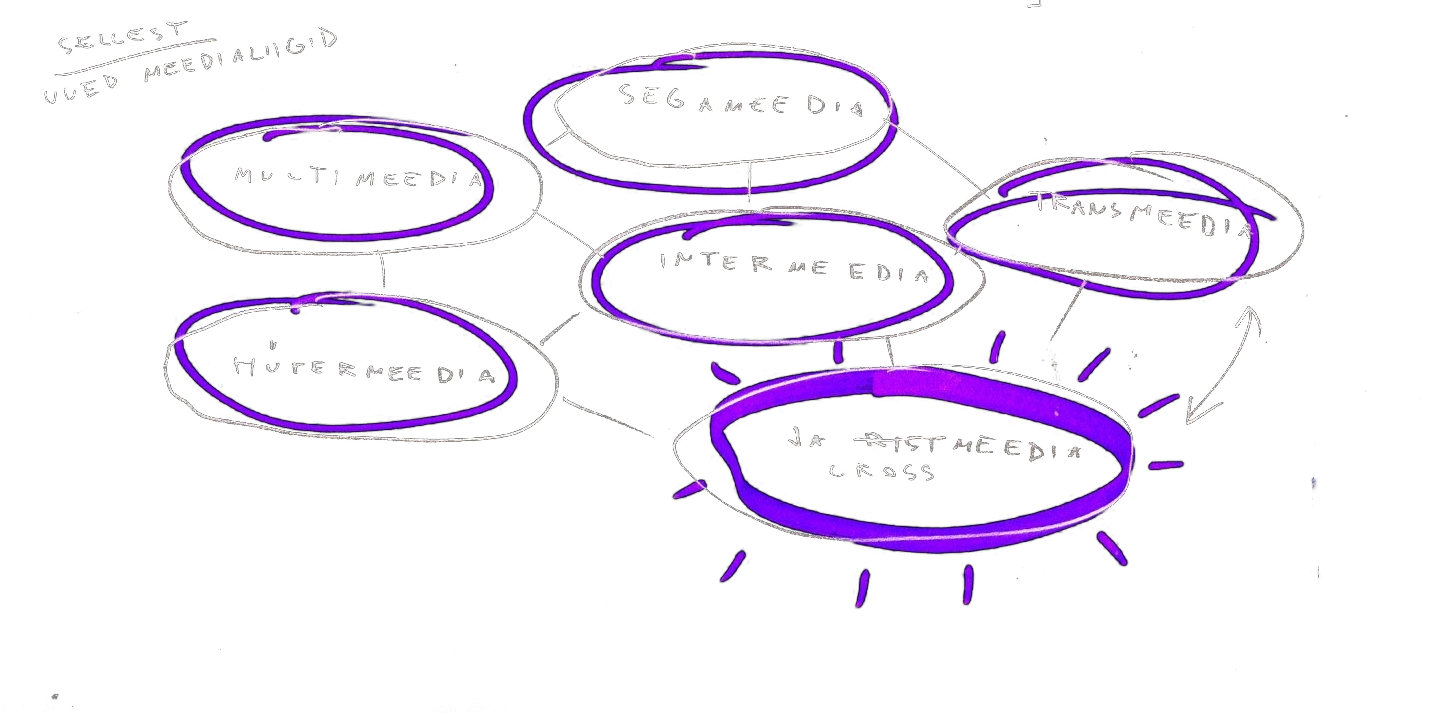 SELLEST
UUED MEEDIALIIGID
SEGAMEEDIA
MULTIMEEDIA
TRANSMEEDIA
INTERMEEDIA
HÜTERMEEDIA
JA RISTMEEDIA
CROSS